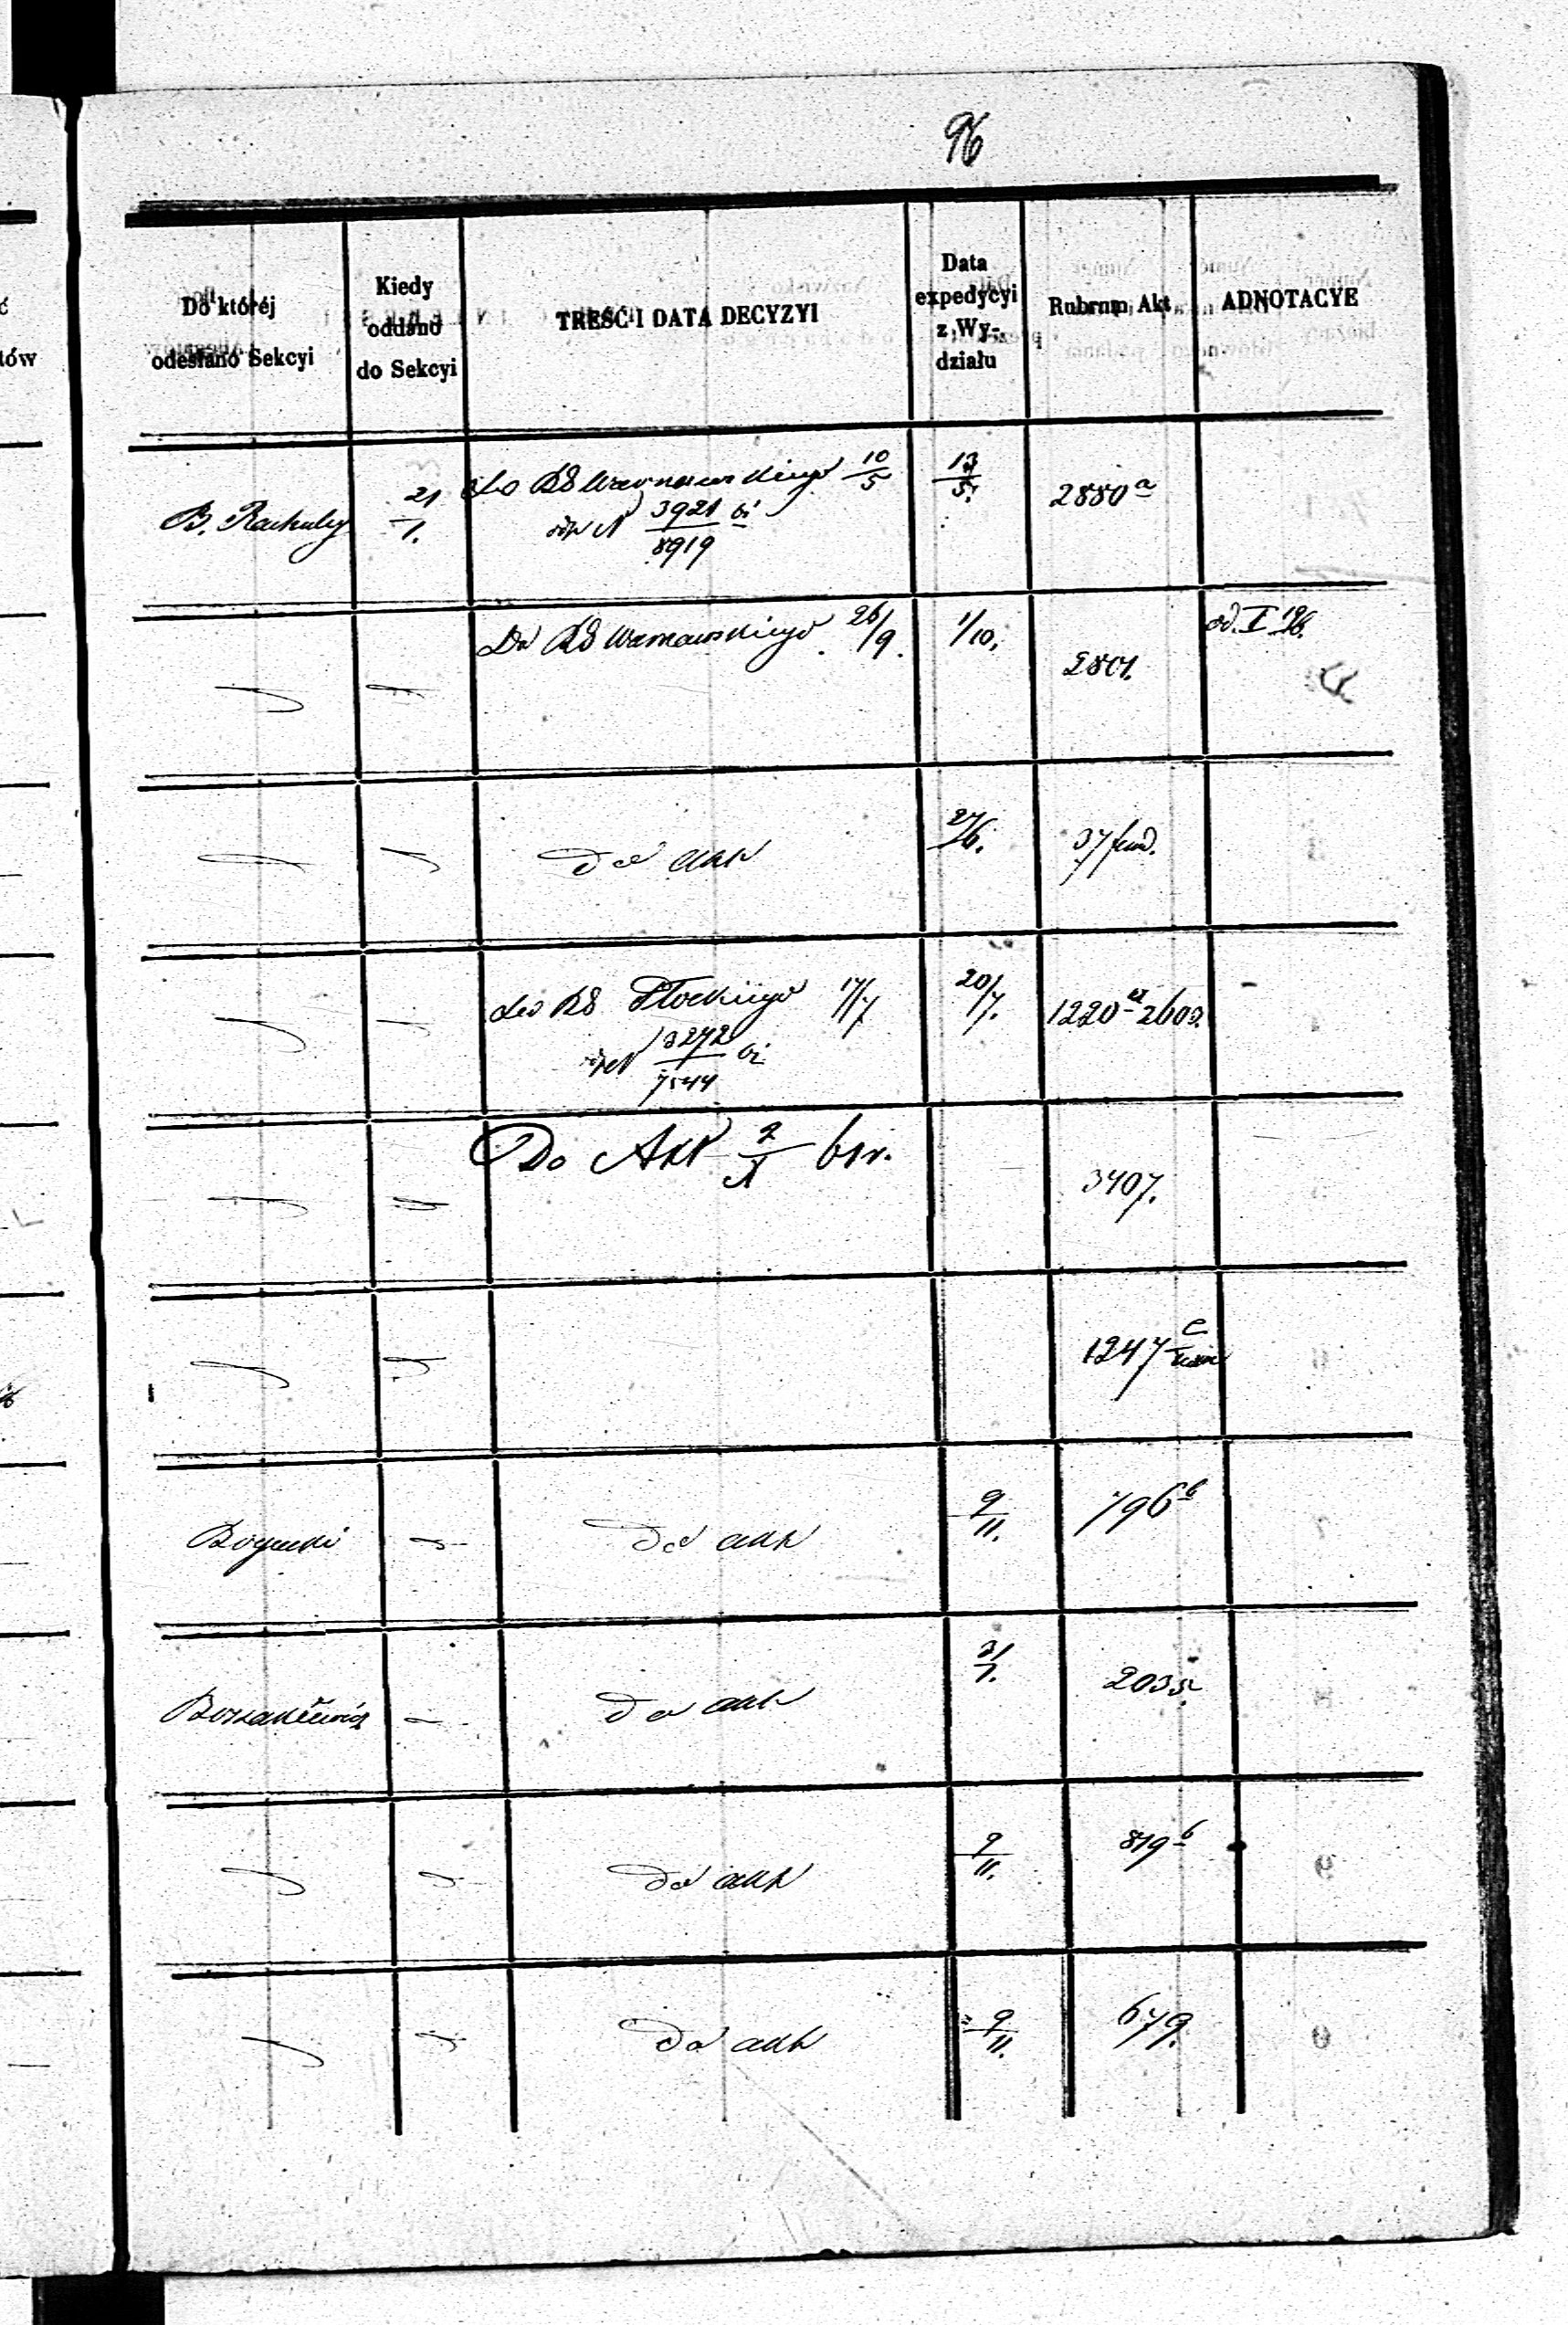 96
Do któréj
odesłano Sekcyi
Kiedy
oddano
do Sekcyi
TREŚĆ I DATA DECYZYI
Data
expedycyi
z Wy-
działu
Rubrum Akt
ADNOTACYE
B. Rachuby
21/1.
do RG Warszawskiego 10/5
3921/8919
13/5.
2880 a
Do RG Warszawskiego 26/9.
1/10.
2801.
od. I
do akt
27/6.
37 fund.
do RG Płockiego 17/7
3272/7544
20/7.
1220 a 2603.
Do Akt 2/X br.
3407.
1247
do akt
9/11.
796 b
do akt
31/1.
2035.
do akt
9/11.
819 b
do akt
9/11.
679.